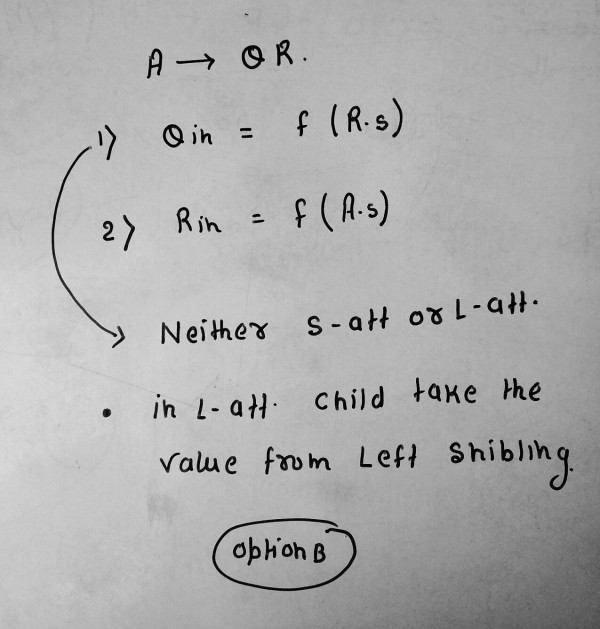 A → QR.
1) Qin = f (R.s)
2) Rin = f (A.s)
Neither S-att or L-att.
• in L-att. Child take the
value from Left Shibling.
option B